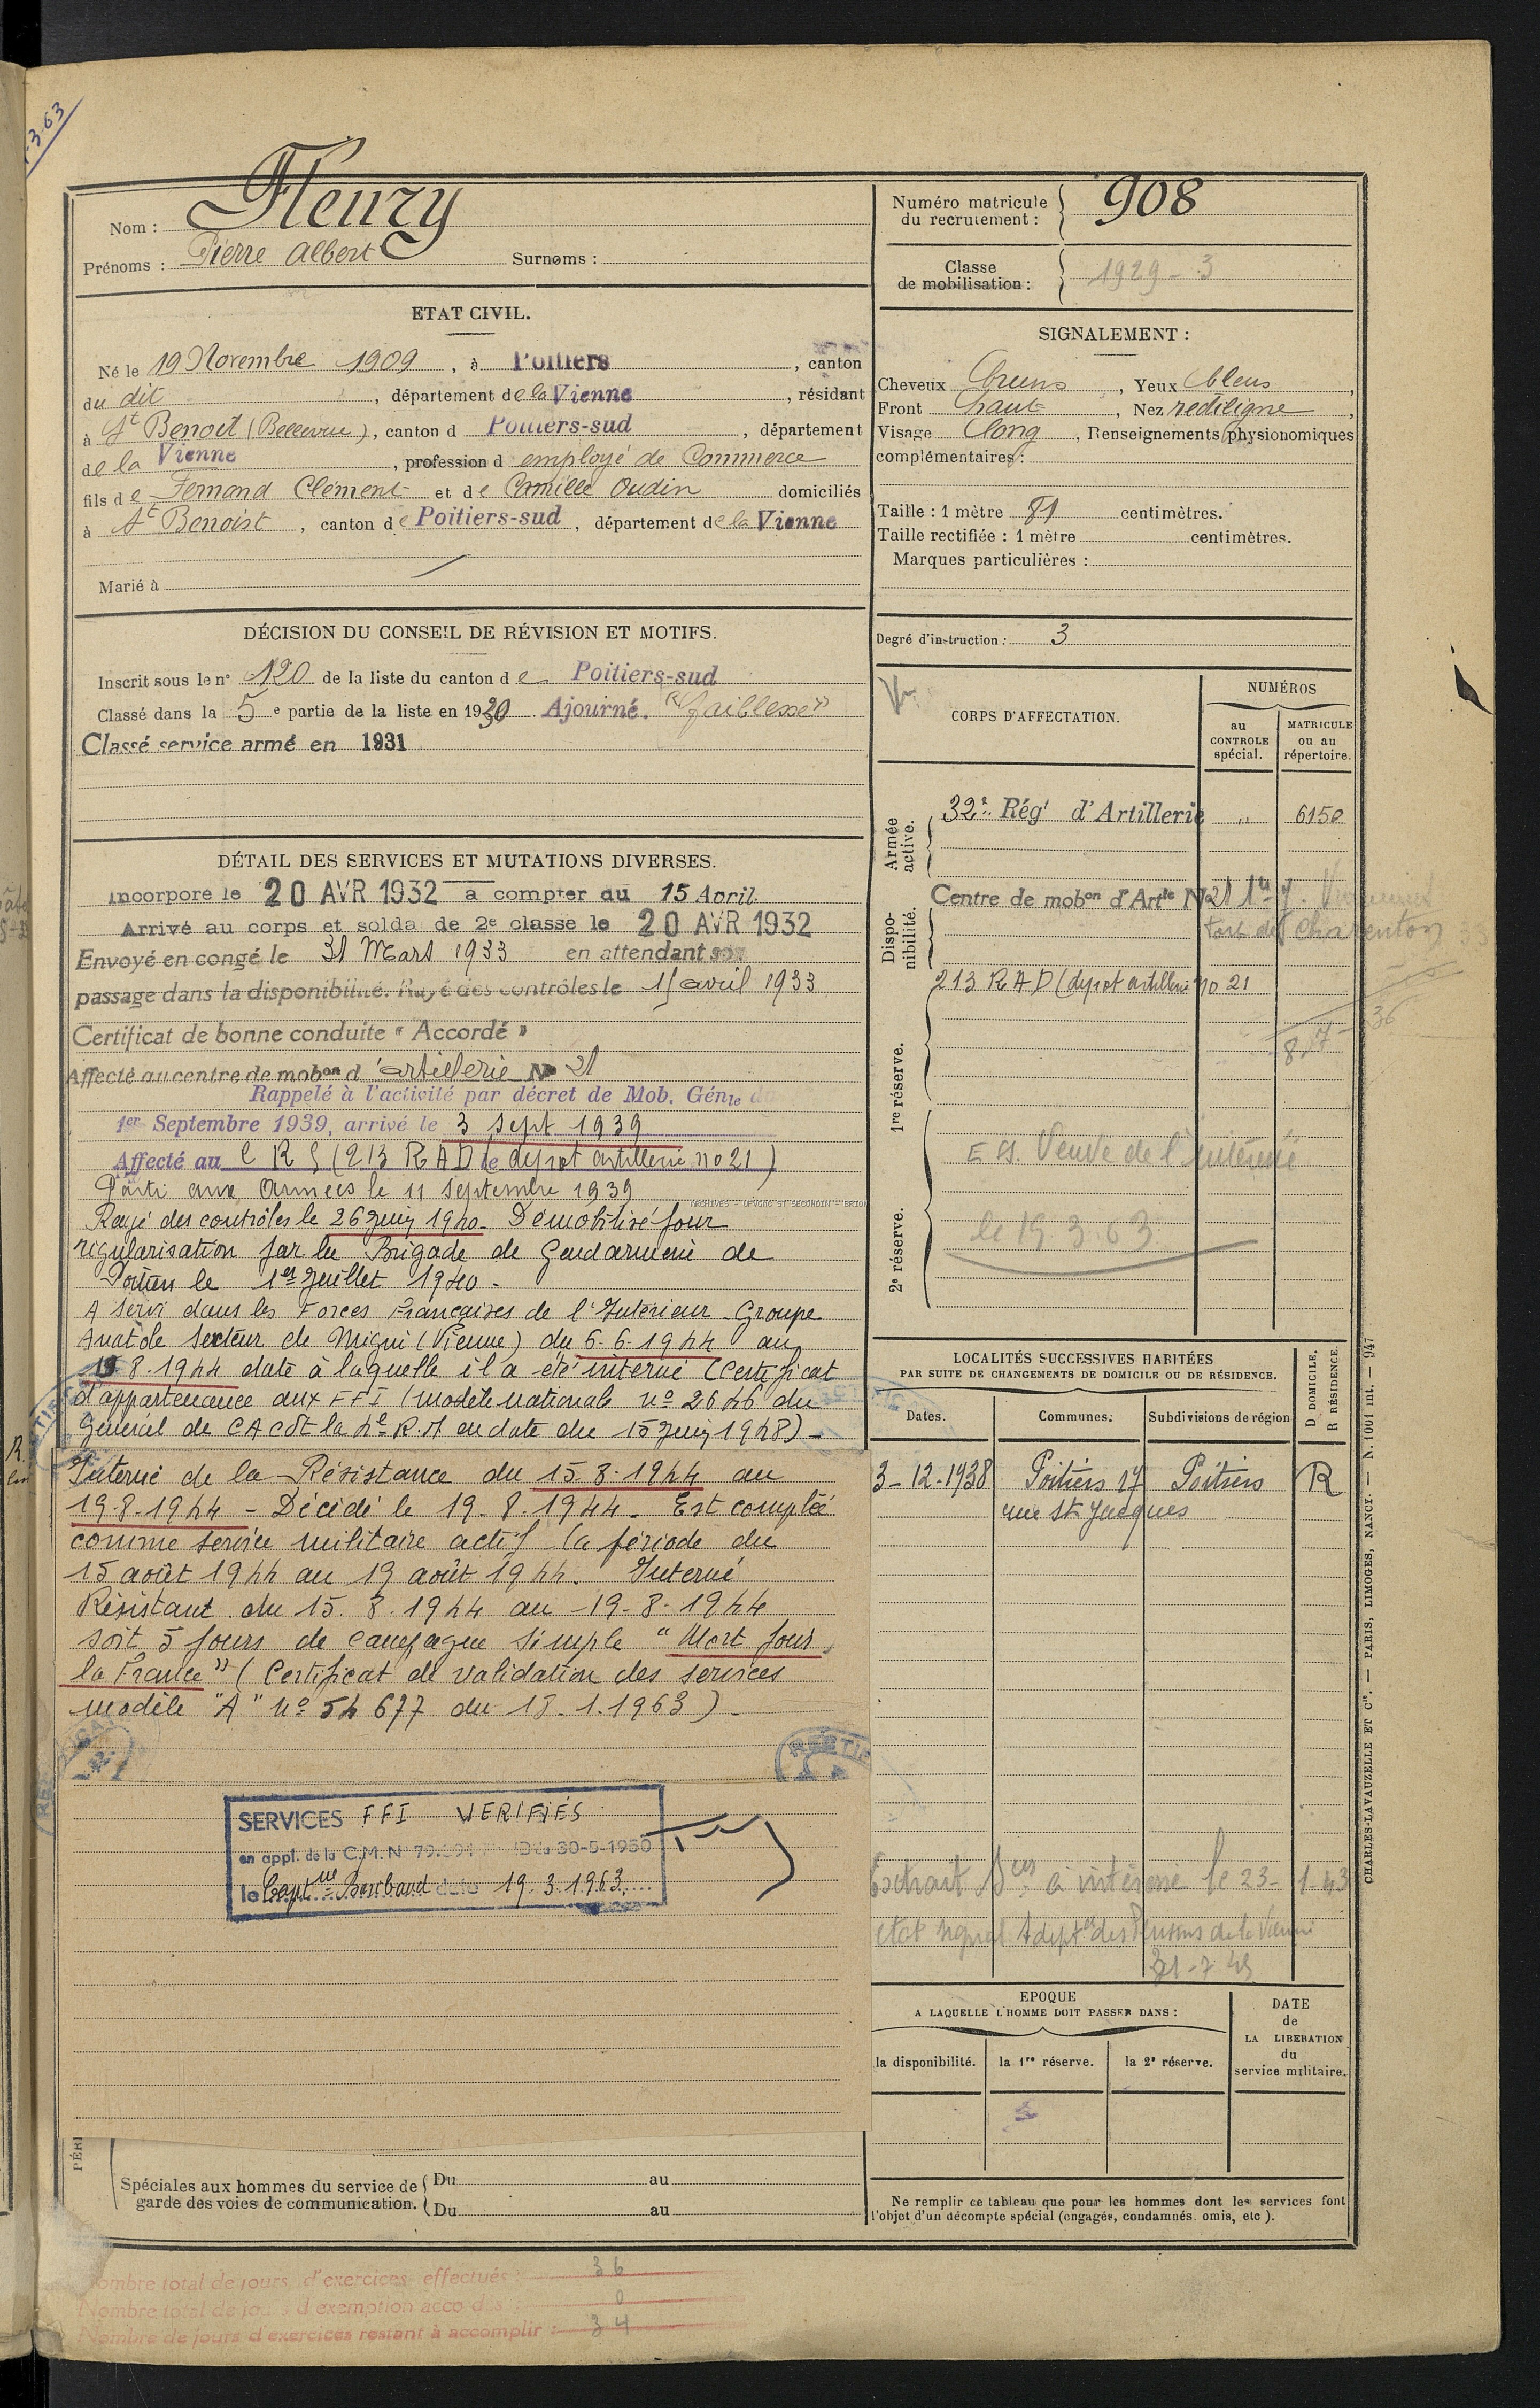 -3-63
Nom : Fleury
Prénoms : Pierre Albert Surnoms :
Numéro matricule du recrutement : 908
Classe de mobilisation : 1929 - 3
ETAT CIVIL.
Né le 19 Novembre 1909, à Poitiers, canton
du dit, département de la Vienne, résidant
à St Benoit (Bellevue), canton d Poitiers-sud, département
de la Vienne, profession d employé de Commerce
fils de Fernand Clément et de Camille Oudin domiciliés
à St Benoist, canton de Poitiers-sud, département de la Vienne
Marié à
SIGNALEMENT :
Cheveux bruns, Yeux bleus,
Front haut, Nez rectiligne,
Visage long, Renseignements physionomiques
complémentaires :
Taille : 1 mètre 81 centimètres.
Taille rectifiée : 1 mètre centimètres.
Marques particulières :
Degré d'instruction : 3
DÉCISION DU CONSEIL DE RÉVISION ET MOTIFS.
Inscrit sous le n° 120 de la liste du canton de Poitiers-sud
Classé dans la 5e partie de la liste en 1930 Ajourné. "faiblesse"
Classé service armé en 1931
DÉTAIL DES SERVICES ET MUTATIONS DIVERSES.
Incorporé le 20 AVR 1932 à compter du 15 Avril
Arrivé au corps et soldat de 2e classe le 20 AVR 1932
Envoyé en congé le 31 Mars 1933 en attendant son
passage dans la disponibilité. Rayé des contrôles le 15 avril 1933
Certificat de bonne conduite "Accordé"
Affecté au centre de mobon d'artillerie No 21
Rappelé à l'activité par décret de Mob. Génle du
1er Septembre 1939, arrivé le 3 sept 1939
Affecté au (213 RAD le depot artillerie no 21)
Parti aux Armées le 11 septembre 1939
ARCHIVES
Rayé des contrôles le 26 juin 1940. Démobilisé pour
régularisation par la Brigade de Gendarmerie de
Poitiers le 1er Juillet 1940 -
A servi dans les Forces Françaises de l'Intérieur - Groupe
Anatole Secteur de Migné (Vienne) du 6-6-1944 au
15 8. 1944 date à laquelle il a été interné (Certificat
d'appartenance aux FFI (modèle national no 2646 du
Général de CA Cdt la 4e R.M en date du 15 juin 1948) -
Interné de la Résistance du 15.8.1944 au
19-8-1944 - Décédé le 19.8.1944. Est comptée
comme service militaire actif la période du
15 août 1944 au 19 août 1944. Interné
Résistant du 15.8.1944 au 19-8-1944
soit 5 jours de campagne simple "Mort pour
la France" (Certificat de validation des services
modèle "A" no 54 677 du 18.1.1963) -
SERVICES FFI VERIFIÉS
en appl. de la C.M. No 30-5-1950
le Captne Bariband date 19.3.1963
PÉRI
Spéciales aux hommes du service de garde des voies de communication.
Du au
Du au
Nombre total de jours d'exercices effectués : 36
Nombre total de jours d'exemption accordés : 0
Nombre de jours d'exercices restant à accomplir : 34
CORPS D'AFFECTATION.
NUMÉROS
au CONTROLE spécial.
MATRICULE ou au répertoire.
Armée active.
32e Régt d'Artillerie " 6150
Disponibilité.
Centre de mobon d'Artie No 21
Fort de Charenton
213 RAD (depot artillerie no 21
1re réserve.
ES. Veuve de l'intéressé
le 19.3.63
2e réserve.
LOCALITÉS SUCCESSIVES HABITÉES
PAR SUITE DE CHANGEMENTS DE DOMICILE OU DE RÉSIDENCE.
D DOMICILE,
R RÉSIDENCE.
Dates. Communes. Subdivisions de région
3-12-1938 Poitiers 17 rue St Jacques Poitiers R
Extrait à intéressé le 23-1-43
21-7-49
EPOQUE
A LAQUELLE L'HOMME DOIT PASSER DANS :
la disponibilité. la 1re réserve. la 2e réserve.
DATE de LA LIBERATION du service militaire.
Ne remplir ce tableau que pour les hommes dont les services font
l'objet d'un décompte spécial (engagés, condamnés. omis, etc ).
CHARLES-LAVAUZELLE ET Cie. — PARIS, LIMOGES, NANCY. — N. 1001 int. — 947